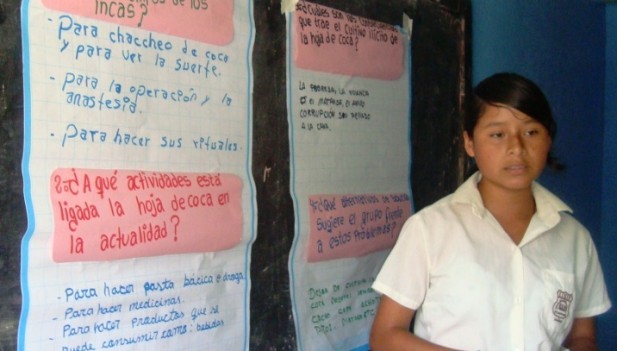 de los
incas?
- Para chaccheo de coca
y para ver la suerte.
- Para la operación y la
anastesia.
- Para hacer sus rituales.
2.-¿A qué actividades está
ligada la hoja de coca en
la actualidad?
- Para hacer pasta básica o droga
- Para hacer medicinas.
- Para hacer Productos que se
Puede consumir como: bebidas
3.¿Cuáles son las consecuencias
que trae el cultivo ilícito de
la hoja de coca?
LA POBREZA, LA VIOLENCIA
CORRUPCIÓN SON DEBIDO
A LA COCA.
4.¿Qué alternativas de
sugiere el grupo frente
a estos Problemas?